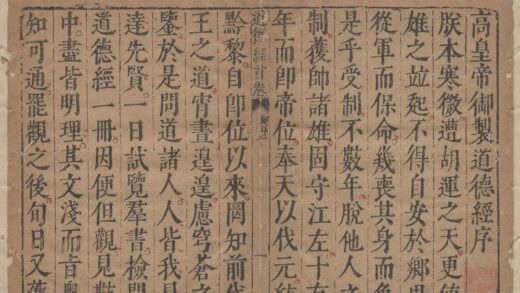 高皇帝御製道德經序
朕本寒微遭胡運之天更
雄之竝起不得自安於鄉里
從軍而保命幾喪其身而免
是乎受制不數年脫他人之
制獲帥諸雄固守江左十有
年而即帝位奉天以代元統
道德經首卷
一
黔黎自即位以來罔知前代
王之道宵晝遑遑慮穹蒼之
鑒於是問道諸人人皆我見
達先賢一日試覽羣書檢間
道德經一冊因便但觀見數
中盡皆明理其文淺而旨奧
知可通罷觀之後旬日又獲